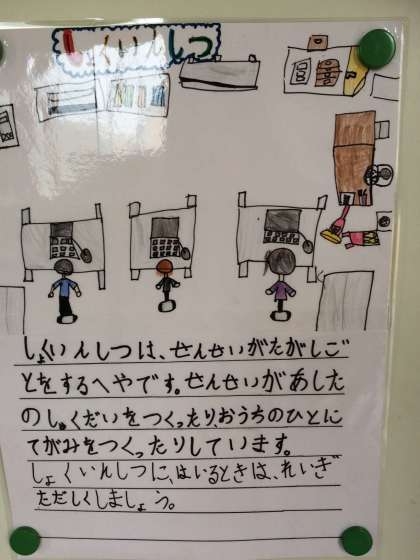 しょくいんしつ
しょくいんしつは、せんせいがたがしご
とをするへやです。せんせいがあした
のしゅくだいをつくったり、おうちのひとに
てがみをつくったりしています。
しょくいんしつに、はいるときは、れいぎ
ただしくしましょう。